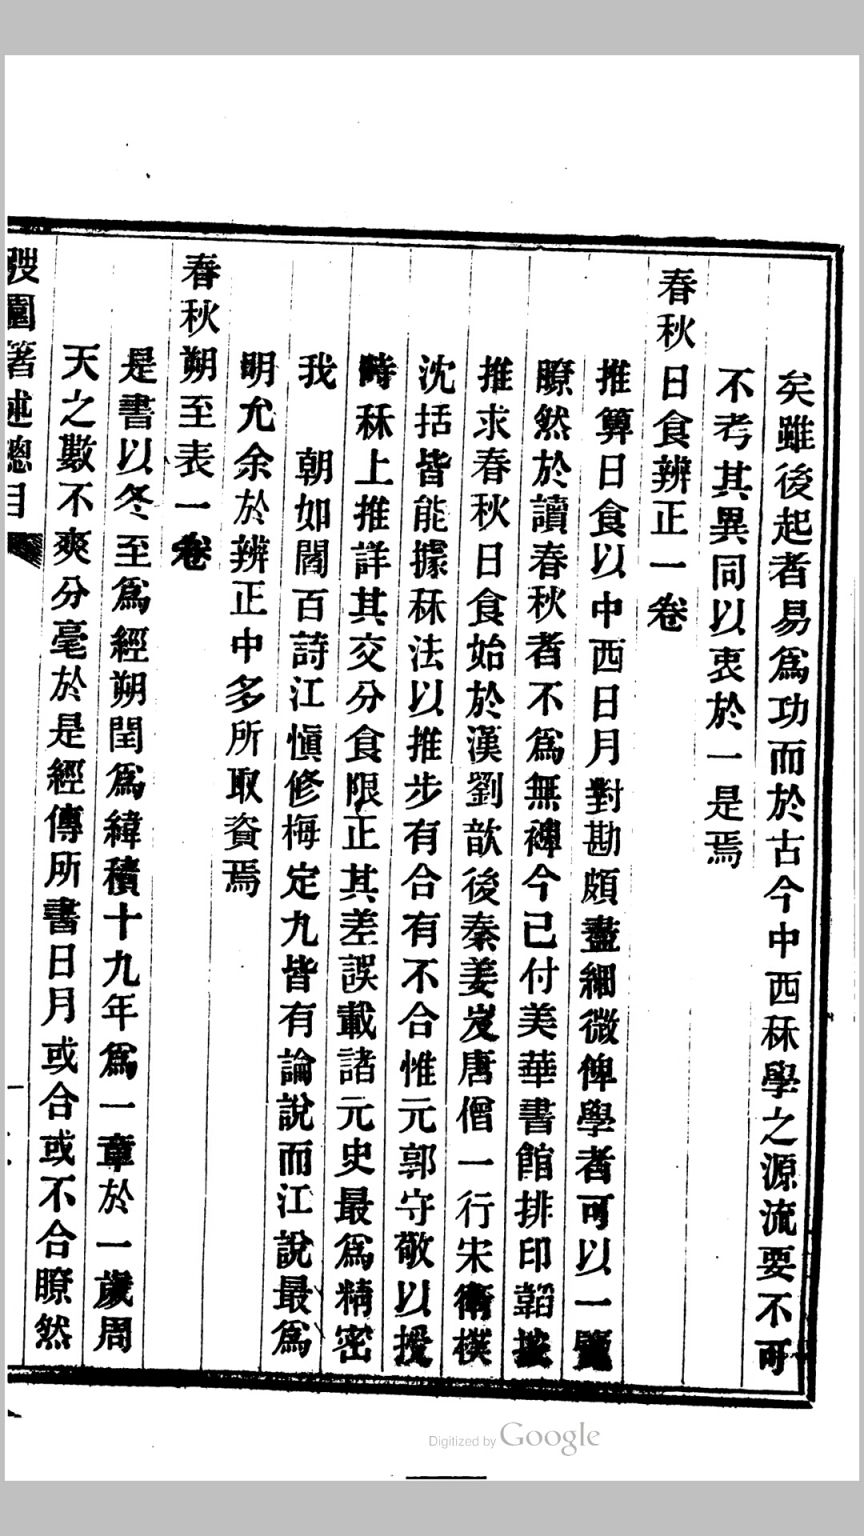 矣雖後起者易爲功而於古今中西秝學之源流要不可
不考其異同以衷於一是焉
春秋日食辨正一卷
推算日食以中西日月對勘頗盡細微俾學者可以一覽
瞭然於讀春秋者不爲無裨今已付美華書館排印韜按
推求春秋日食始於漢劉歆後秦姜岌唐僧一行宋衞樸
沈括皆能據秝法以推步有合有不合惟元郭守敬以授
時秝上推詳其交分食限正其差誤載諸元史最爲精密
我　朝如閻百詩江愼修梅定九皆有論說而江說最爲
明允余於辨正中多所取資焉
春秋朔至表一卷
是書以冬至爲經朔閏爲緯積十九年爲一章於一歲周
天之數不爽分毫於是經傳所書日月或合或不合瞭然
弢園著述總目
Digitized by Google